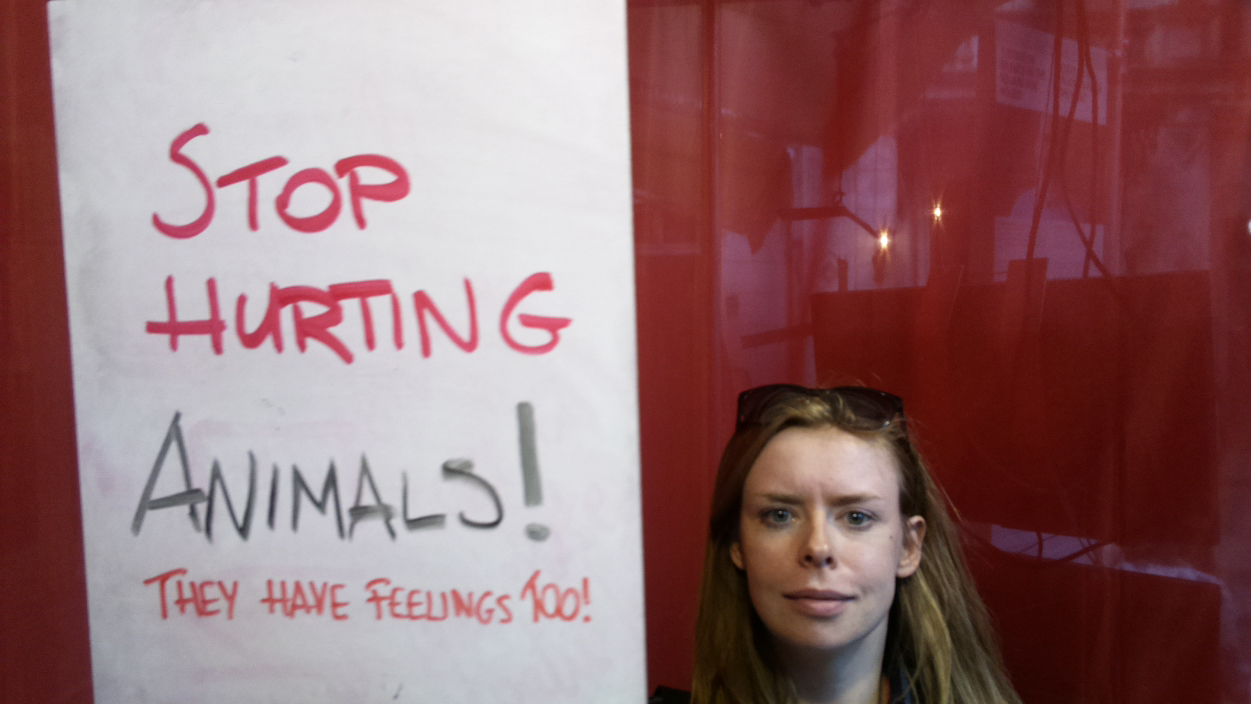 STOP
HURTING
ANIMALS!
THEY HAVE FEELINGS TOO!